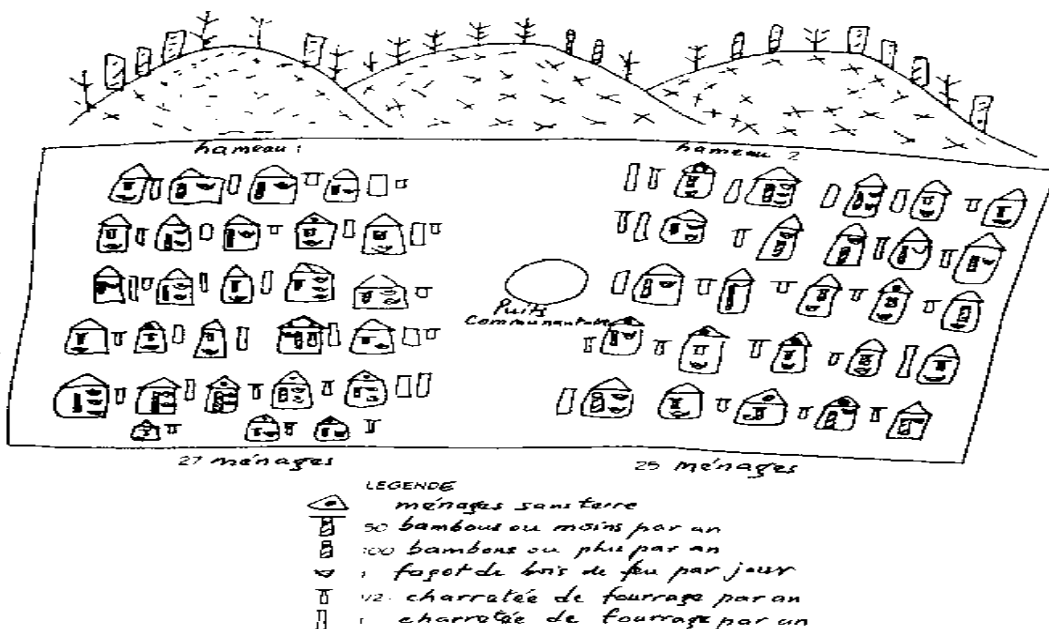 hameau 1
hameau 2
Puits
Communautaire
27 ménages
25 ménages
LEGENDE
ménages sans terre
50 bambous ou moins par an
100 bambous ou plus par an
1 fagot de bois de feu par jour
1/2 charretée de fourrage par an
1 charretée de fourrage par an